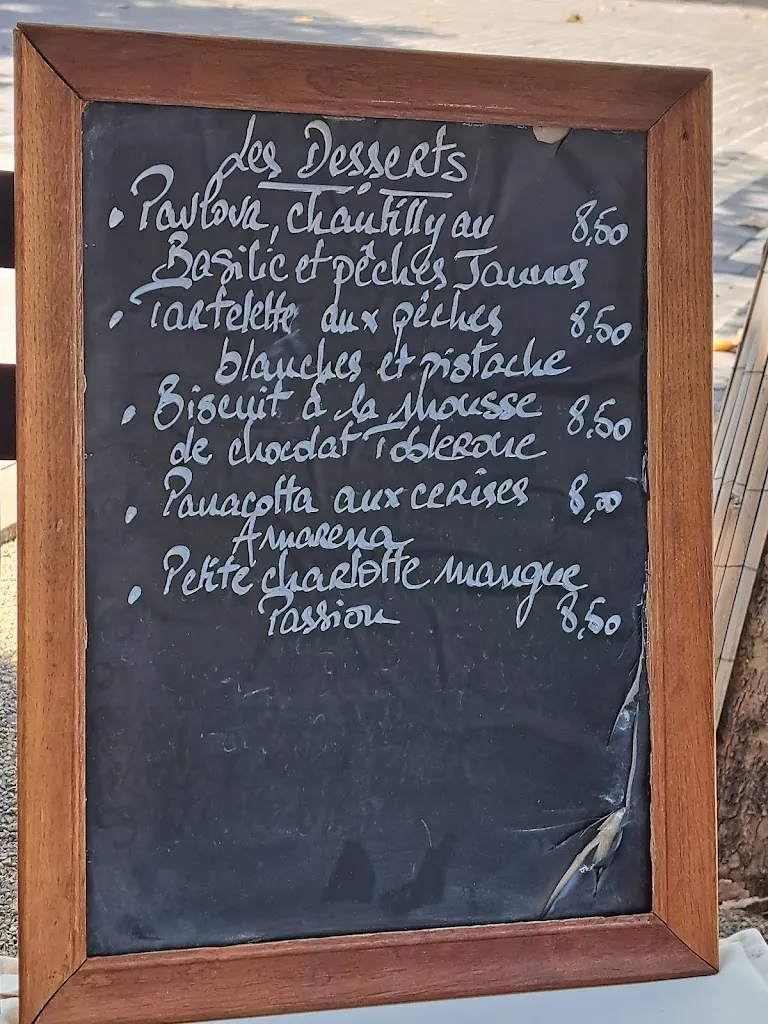 Les Desserts
• Pavlova, chantilly au 8,50
Basilic et pêches Jaunes
• Tartelette aux pêches 8,50
blanches et pistache
• Biscuit à la mousse 8,50
de chocolat Toblerone
• Panacotta aux cerises 8,00
Amarena
• Petite charlotte mangue
Passion 8,50